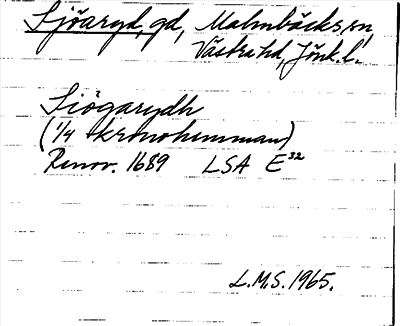 Sjöaryd, gd, Malmbäcks sn
Västra hd, Jönk. l.
Siögarydh
(1/4 kronohemman)
Renov. 1689 LSA E32
L.M.S. 1965.